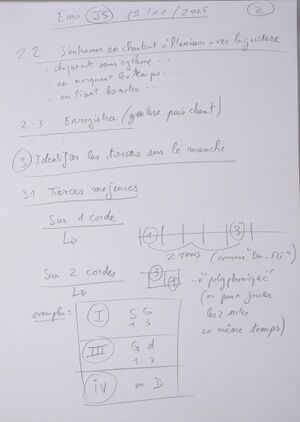 Emi 35 15/11/2025 2
2-2 S'entraîner en chantant à l'unisson avec la guitare
- chaque note sans rythme ...
- en marquant les temps ...
- en liant les notes ...
2-3 Enregistrer (guitare puis chant)
3 Identifier les tierces sur le manche
3.1 Tierces majeures
Sur 1 corde
1 3
2 TONS (comme "Do-Mi")
Sur 2 cordes
3
1
→ "polyphonique"
(on peut jouer
les 2 notes
en même temps)
exemples =
I S G
1 3
III G d
1 3
iv m D